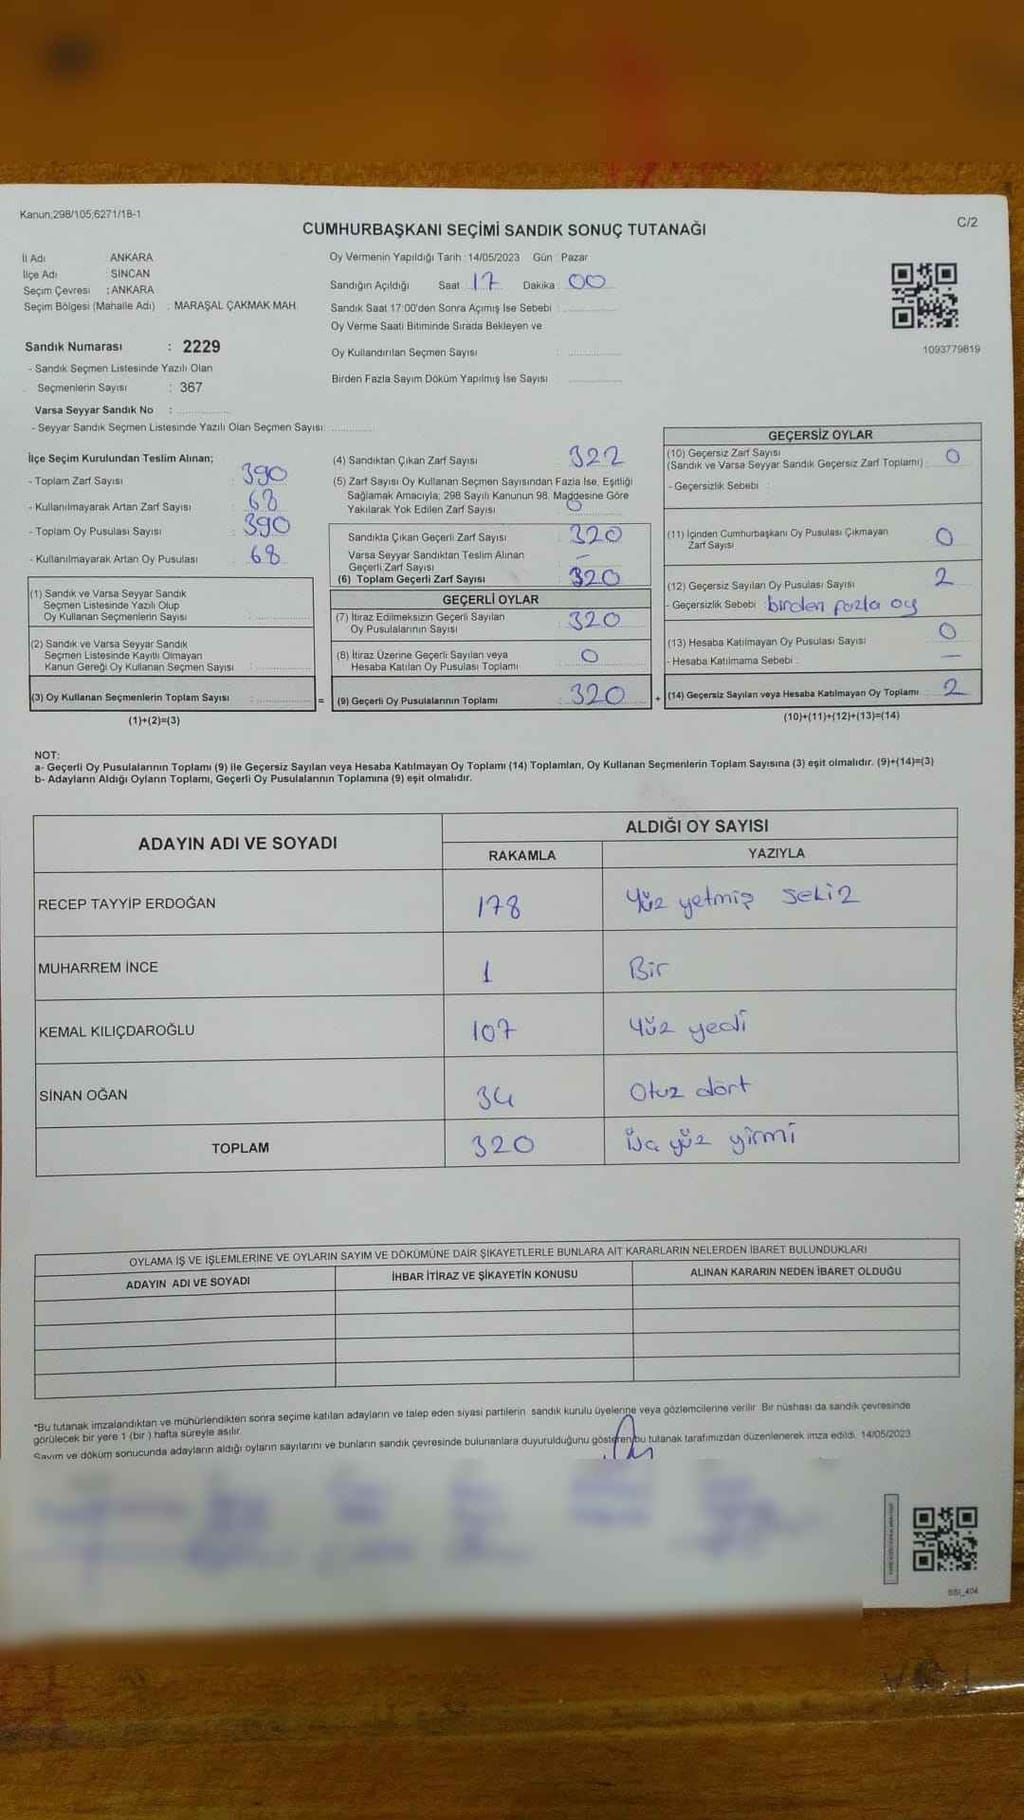 Kanun;298/105;6271/18-1
C/2
CUMHURBAŞKANI SEÇİMİ SANDIK SONUÇ TUTANAĞI
İl Adı ANKARA
İlçe Adı : SİNCAN
Seçim Çevresi : ANKARA
Seçim Bölgesi (Mahalle Adı) : MARAŞAL ÇAKMAK MAH.
Sandık Numarası : 2229
- Sandık Seçmen Listesinde Yazılı Olan
Seçmenlerin Sayısı : 367
Varsa Seyyar Sandık No :
- Seyyar Sandık Seçmen Listesinde Yazılı Olan Seçmen Sayısı:
Oy Vermenin Yapıldığı Tarih : 14/05/2023 Gün : Pazar
Sandığın Açıldığı Saat 17 Dakika 00
Sandık Saat 17:00'den Sonra Açımış İse Sebebi :
Oy Verme Saati Bitiminde Sırada Bekleyen ve
Oy Kullandırılan Seçmen Sayısı :
Birden Fazla Sayım Döküm Yapılmış İse Sayısı
1093779819
İlçe Seçim Kurulundan Teslim Alınan;
- Toplam Zarf Sayısı : 390
- Kullanılmayarak Artan Zarf Sayısı : 68
- Toplam Oy Pusulası Sayısı : 390
- Kullanılmayarak Artan Oy Pusulası : 68
(1) Sandık ve Varsa Seyyar Sandık
Seçmen Listesinde Yazılı Olup
Oy Kullanan Seçmenlerin Sayısı :
(2) Sandık ve Varsa Seyyar Sandık
Seçmen Listesinde Kayıtlı Olmayan
Kanun Gereği Oy Kullanan Seçmen Sayısı :
(3) Oy Kullanan Seçmenlerin Toplam Sayısı :
(1)+(2)=(3)
(4) Sandıktan Çıkan Zarf Sayısı : 322
(5) Zarf Sayısı Oy Kullanan Seçmen Sayısından Fazla İse, Eşitliği
Sağlamak Amacıyla, 298 Sayılı Kanunun 98. Maddesine Göre
Yakılarak Yok Edilen Zarf Sayısı : 0
Sandıkta Çıkan Geçerli Zarf Sayısı : 320
Varsa Seyyar Sandıktan Teslim Alınan
Geçerli Zarf Sayısı : –
(6) Toplam Geçerli Zarf Sayısı : 320
GEÇERLİ OYLAR
(7) İtiraz Edilmeksizin Geçerli Sayılan
Oy Pusulalarının Sayısı : 320
(8) İtiraz Üzerine Geçerli Sayılan veya
Hesaba Katılan Oy Pusulası Toplamı : 0
= (9) Geçerli Oy Pusulalarının Toplamı : 320
GEÇERSİZ OYLAR
(10) Geçersiz Zarf Sayısı
(Sandık ve Varsa Seyyar Sandık Geçersiz Zarf Toplamı) : 0
- Geçersizlik Sebebi :
(11) İçinden Cumhurbaşkanı Oy Pusulası Çıkmayan
Zarf Sayısı : 0
(12) Geçersiz Sayılan Oy Pusulası Sayısı : 2
- Geçersizlik Sebebi : birden fazla oy
(13) Hesaba Katılmayan Oy Pusulası Sayısı : 0
- Hesaba Katılmama Sebebi : –
+ (14) Geçersiz Sayılan veya Hesaba Katılmayan Oy Toplamı : 2
(10)+(11)+(12)+(13)=(14)
NOT:
a- Geçerli Oy Pusulalarının Toplamı (9) ile Geçersiz Sayılan veya Hesaba Katılmayan Oy Toplamı (14) Toplamları, Oy Kullanan Seçmenlerin Toplam Sayısına (3) eşit olmalıdır. (9)+(14)=(3)
b- Adayların Aldığı Oyların Toplamı, Geçerli Oy Pusulalarının Toplamına (9) eşit olmalıdır.
ADAYIN ADI VE SOYADI ALDIĞI OY SAYISI
RAKAMLA YAZIYLA
RECEP TAYYİP ERDOĞAN 178 Yüz yetmiş sekiz
MUHARREM İNCE 1 Bir
KEMAL KILIÇDAROĞLU 107 Yüz yedi
SİNAN OĞAN 34 Otuz dört
TOPLAM 320 üç yüz yirmi
OYLAMA İŞ VE İŞLEMLERİNE VE OYLARIN SAYIM VE DÖKÜMÜNE DAİR ŞİKAYETLERLE BUNLARA AİT KARARLARIN NELERDEN İBARET BULUNDUKLARI
ADAYIN ADI VE SOYADI İHBAR İTİRAZ VE ŞİKAYETİN KONUSU ALINAN KARARIN NEDEN İBARET OLDUĞU
*Bu tutanak imzalandıktan ve mühürlendikten sonra seçime katılan adayların ve talep eden siyasi partilerin sandık kurulu üyelerine veya gözlemcilerine verilir. Bir nüshası da sandık çevresinde
görülecek bir yere 1 (bir ) hafta süreyle asılır.
Sayım ve döküm sonucunda adayların aldığı oyların sayılarını ve bunların sandık çevresinde bulunanlara duyurulduğunu gösteren bu tutanak tarafımızdan düzenlenerek imza edildi. 14/05/2023
SSI_404